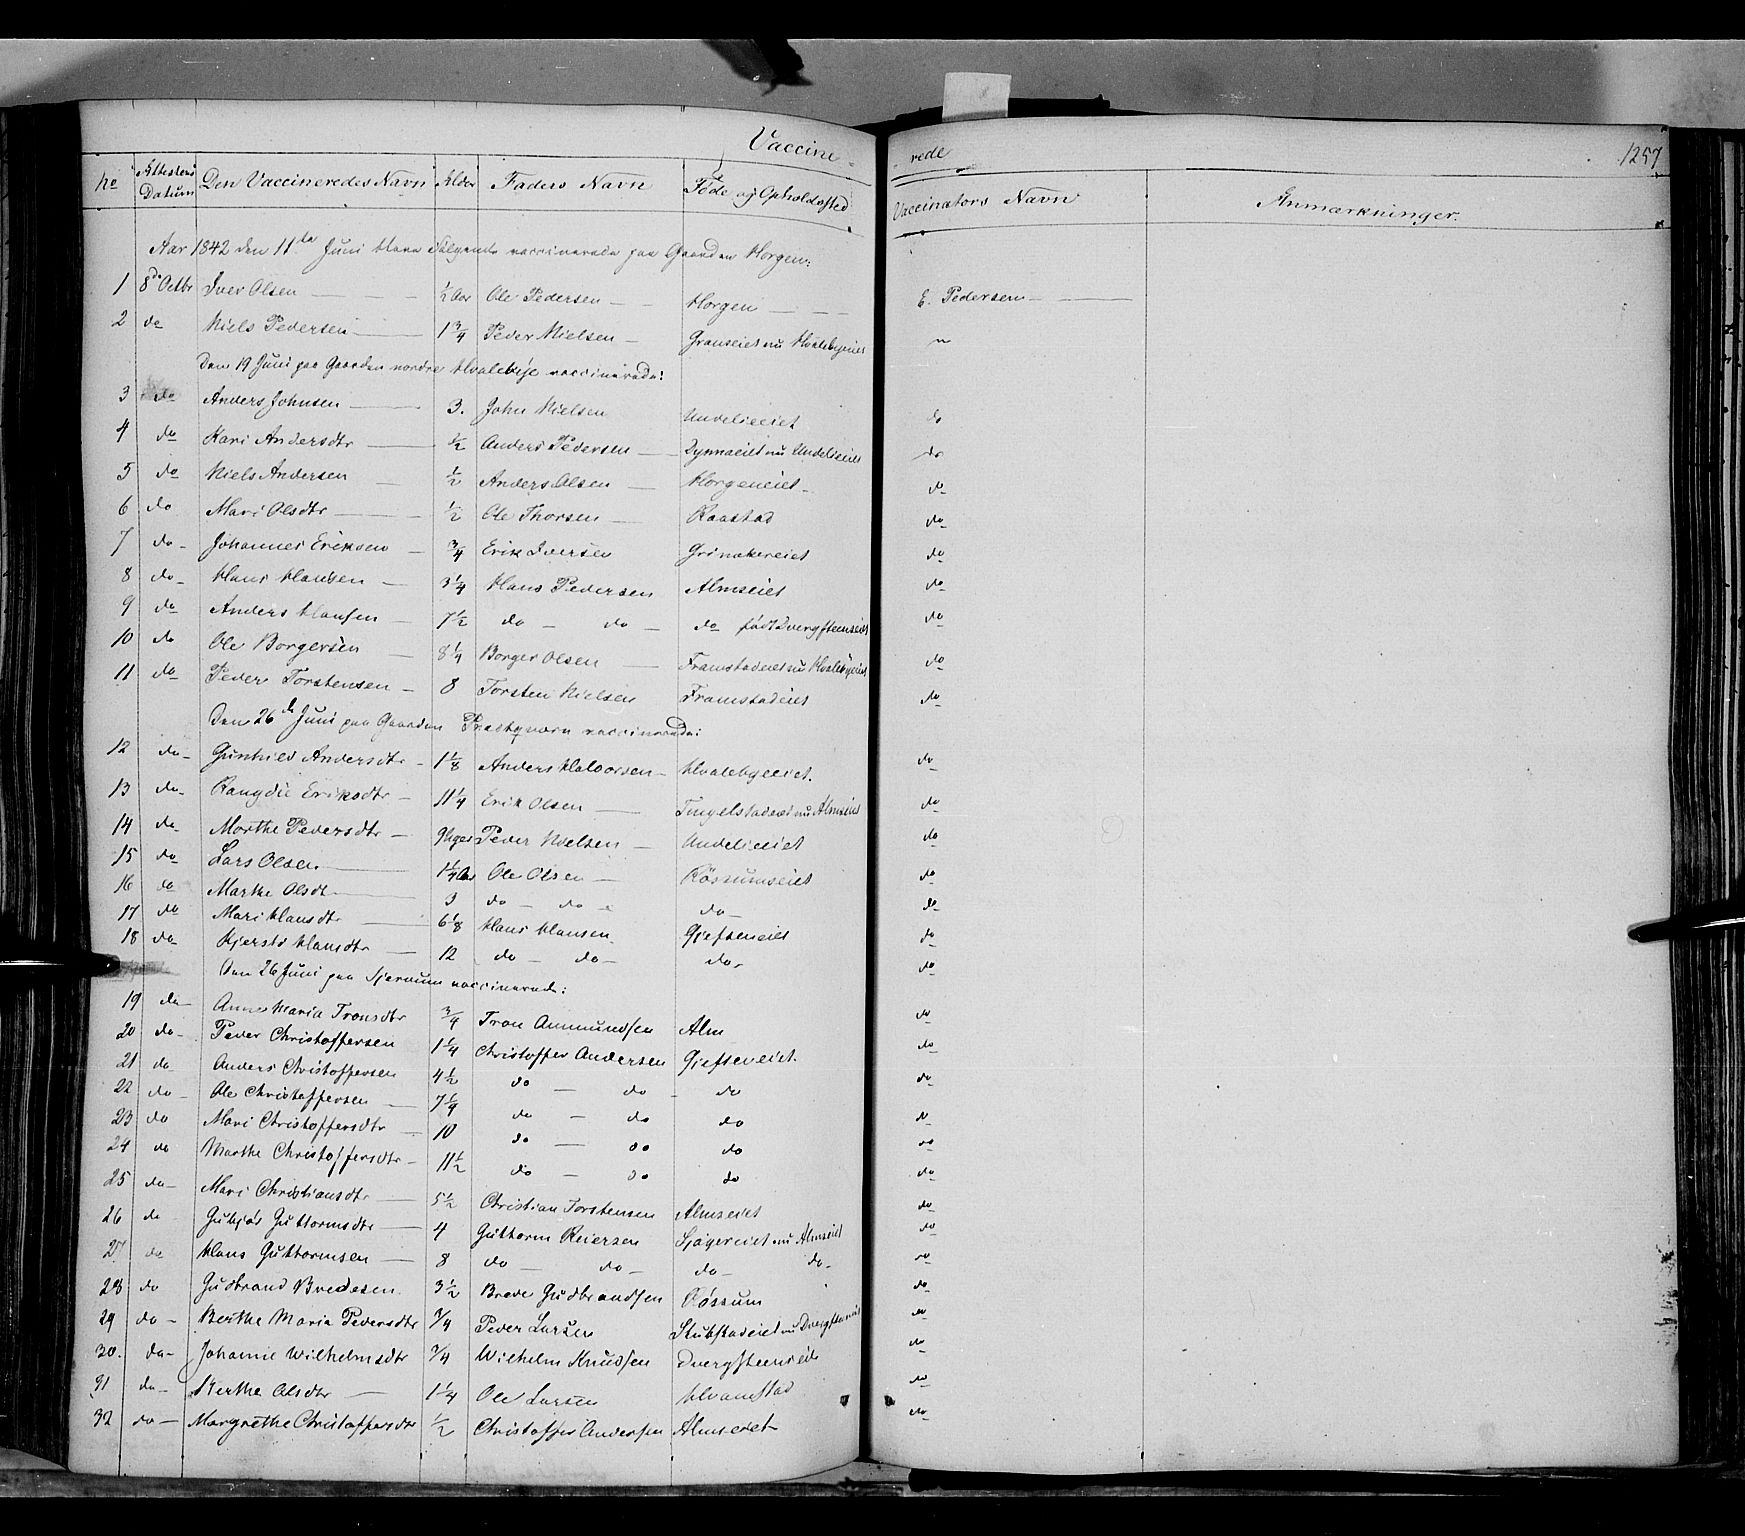 Vaccine- -rede 1257
No Attestens Datum Den Vaccineredes Navn Alder Faders Navn Føde og Opholdssted Vaccinators Navn Anmærkninger.
Aar 1842 den 11te Juni bleve følgende vaccinerede paa Gaarden Horgen:
1 8de Octbr Iver Olsen ½ Aar Ole Pedersen Horgen E. Pedersen
2 do Niels Pedersen 1¾ Peder Nielsen Graneiet nu Hvalebyeiet "
Den 19 Juni paa Gaarden nordre Hvalebye vaccinerede:
3 do Anders Johnsen 3. John Nielsen Undelieiet do
4 do Kari Andersdtr ½ Anders Pedersen Dynnaeiet nu Undelieiet do
5 do Niels Andersen ½ Anders Olsen Horgeneiet do
6 do Mari Olsdtr ½ Ole Thorsen Raastad do
7 do Johannes Eriksen ¾ Erik Iversen Grinakereiet do
8 do Hans Hansen 3¼ Hans Pedersen Almseiet do
9 do Anders Hansen 7½ do do do født Dvergsteenseiet do
10 do Ole Borgersen 8¼ Borger Olsen Framstadeiet nu Hvalebyeiet do
11 do Peder Torstensen 8 Torsten Nielsen Framstadeiet do
Den 26de Juni paa Gaarden Præstqværn vaccinerede:
12 do Gunhild Andersdtr 1⅛ Anders Halvorsen Hvalebyeiet. do
13 do Rangdie Eriksdtr 11¼ Erik Olsen Tingelstadeiet nu Almseiet do
14 do Marthe Pedersdtr 9 Uger Peder Nielsen Undelieiet do
15 do Lars Olsen 1¼ Aar Ole Olsen Røssumseiet do
16 do Marthe Olsdt 3 do do do do
17 do Mari Hansdtr 6⅛ Hans Hansen Gjefseneiet do
18 do Kjersti Hansdtr 12 do do do do
Den 26 Juni paa Njersum vaccinerede:
19 do Anne Maria Tronsdtr ¾ Tron Ammundsen Alm do
20 do Peder Christoffersen 1¼ Christoffer Andersen Gjefseneiet. do
21 do Anders Christoffersen 4½ do do do do
22 do Ole Christoffersen 7¼ do do do do
23 do Mari Christoffersdtr 10 do do do do
24 do Marthe Christoffersdtr 11½ do do do do
25 do Mari Christiansdtr 5½ Christian Torstensen Almseiet do
26 do Gubjør Guttormsdtr 4 Guttorm Reiersen Sjagereiet nu Almseiet do
27 do Hans Guttormsen 8 do do do do do
28 do Gudbrand Bredesen 3½ Brede Gudbrandsen Røssum do
29 do Berthe Maria Pedersdtr ¾ Peder Larsen Skubstadeiet nu Dvergsteneiet do
30. do Johanne Wilhelmsdtr ¾ Wilhelm Knudsen Dvergsteenseiet do
31 do Berthe Olsdtr 1¼ Ole Larsen Hvamstad do
32 do Margrethe Christoffersdtr ½ Christoffer Andersen Almseiet do